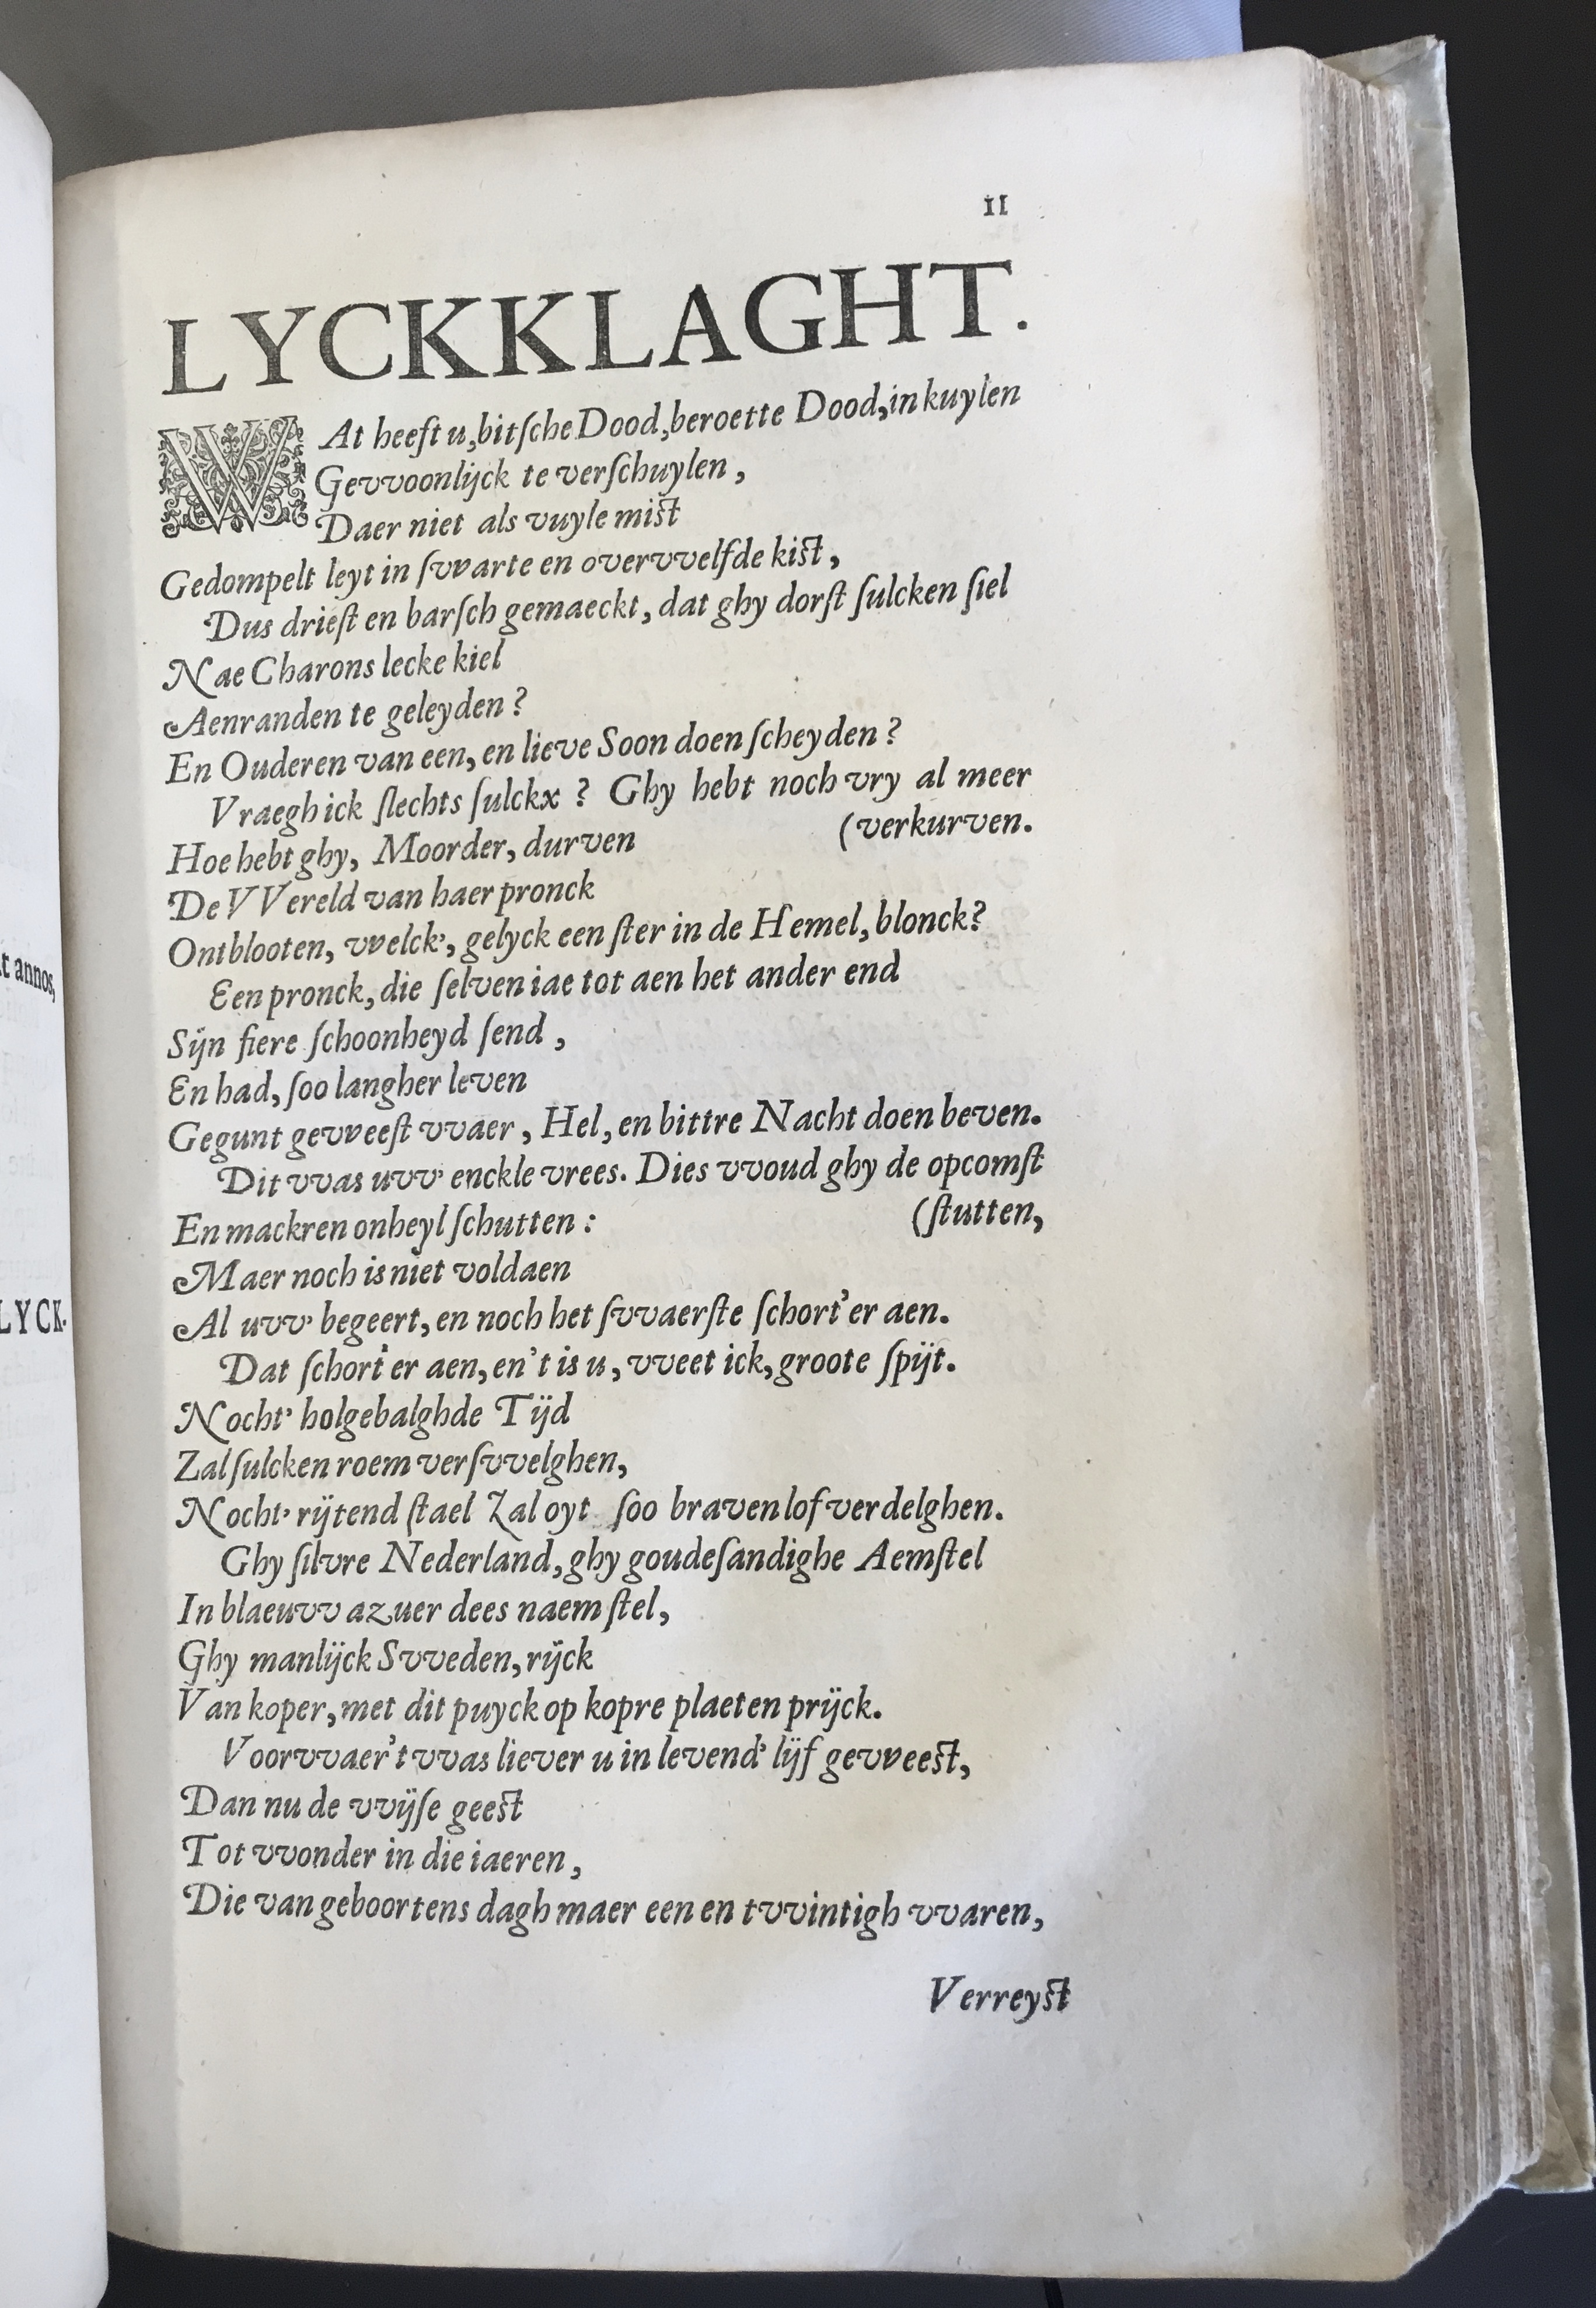 t annos,
LYCK-
11
LYCKKLAGHT.
WAt heeft u, bitſche Dood, beroette Dood, in kuylen
Gevvoonlijck te verſchuylen,
Daer niet als vuyle mist
Gedompelt leyt in ſvvarte en overvvelfde kist,
Dus driest en barſch gemaeckt, dat ghy dorst ſulcken ſiel
Nae Charons lecke kiel
Aenranden te geleyden?
En Ouderen van een, en lieve Soon doen ſcheyden?
Vraegh ick ſlechts ſulckx? Ghy hebt noch vry al meer
(verkurven.
Hoe hebt ghy, Moorder, durven
De VVereld van haer pronck
Ontblooten, vvelck', gelyck een ster in de Hemel, blonck?
Een pronck, die ſelven iae tot aen het ander end
Sijn fiere ſchoonheyd ſend,
En had, ſoo langher leven
Gegunt gevveest vvaer, Hel, en bittre Nacht doen beven.
Dit vvas uvv' enckle vrees. Dies vvoud ghy de opcomst
(stutten,
En mackren onheyl ſchutten:
Maer noch is niet voldaen
Al uvv' begeert, en noch het ſvvaerste ſchort'er aen.
Dat ſchort'er aen, en 't is u, vveet ick, groote ſpijt.
Nocht' holgebalghde Tijd
Zal ſulcken roem verſvvelghen,
Nocht' rijtend stael Zal oyt ſoo braven lof verdelghen.
Ghy ſilvre Nederland, ghy goudeſandighe Aemstel
In blaeuvv azuer dees naem stel,
Ghy manlijck Svveden, rijck
Van koper, met dit puyck op kopre plaeten prijck.
Voorvvaer 't vvas liever u in levend' lijf gevveest,
Dan nu de vvijſe geest
Tot vvonder in die iaeren,
Die van geboortens dagh maer een en tvvintigh vvaren,
Verreyst